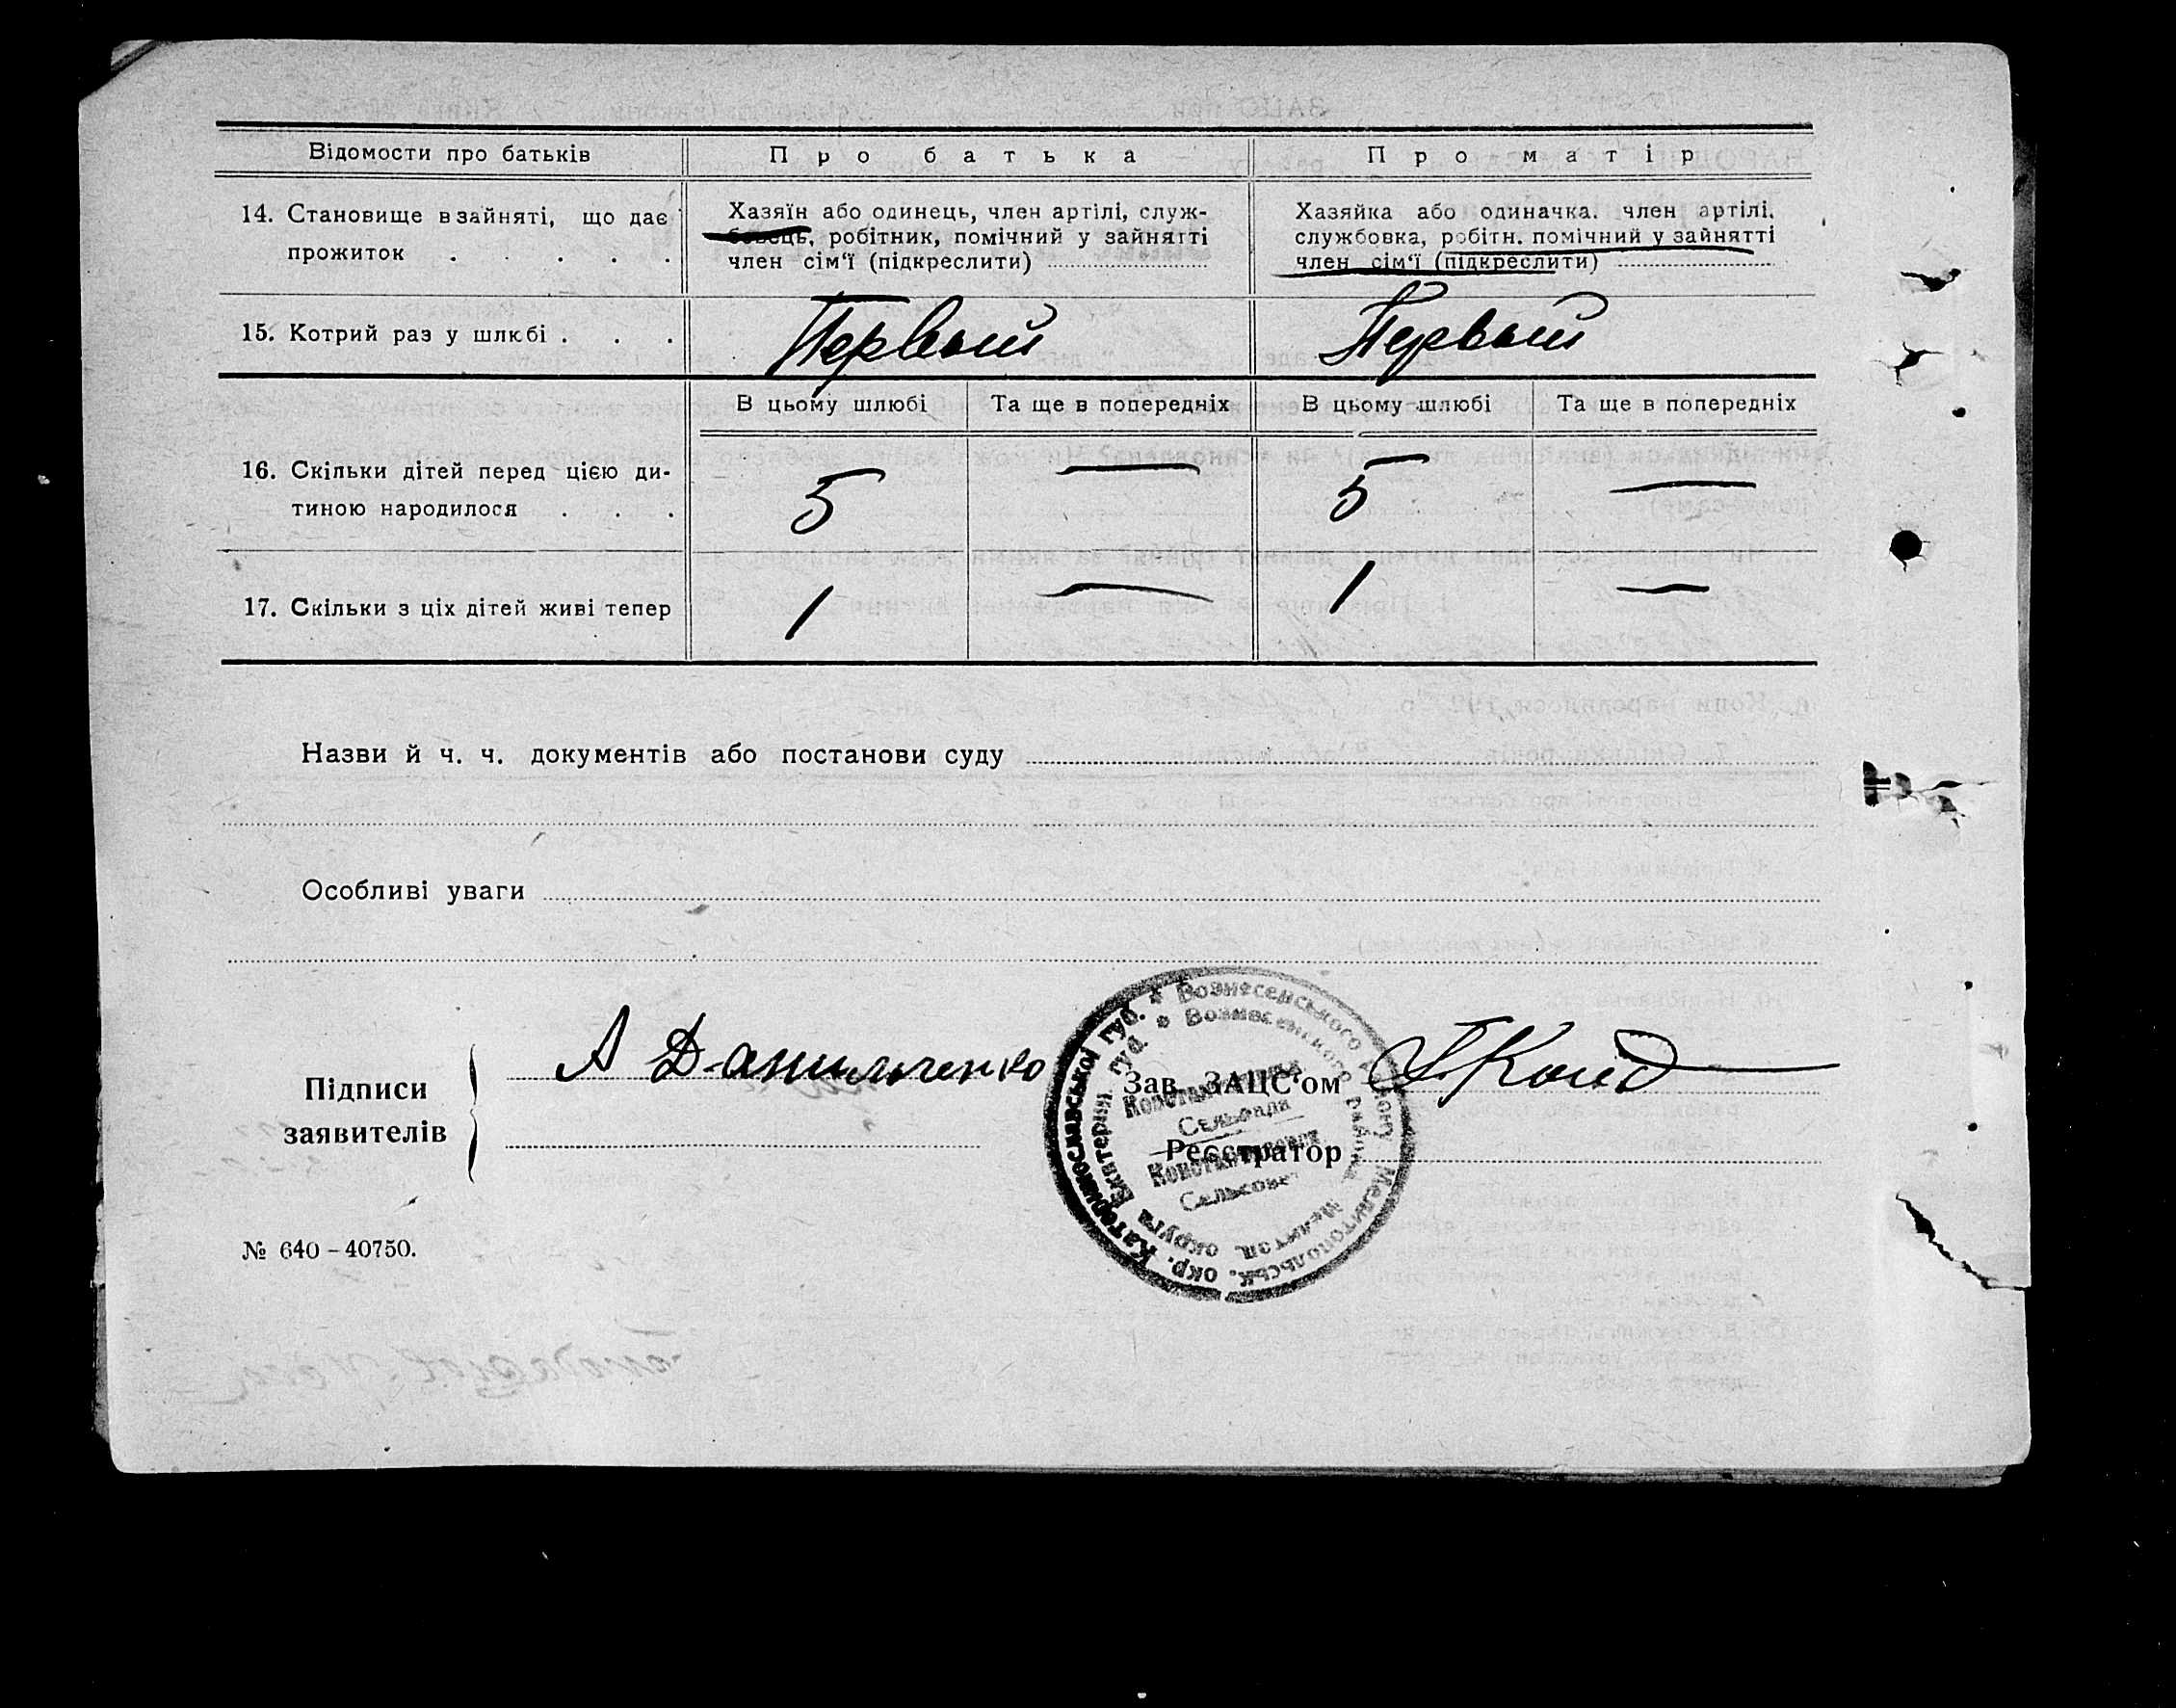 Відомости про батьків
Про батька
Про матір
14. Становище в зайняті, що дає
прожиток . . . . .
Хазяїн або одинець, член артілі, служ-
бовець, робітник, помічний у зайнятті
член сім'ї (підкреслити)
Хазяйка або одиначка. член артілі.
службовка, робітн. помічний у зайнятті
член сім'ї (підкреслити)
15. Котрий раз у шлюбі . . .
Первый
Первый
В цьому шлюбі
Та ще в попередніх
В цьому шлюбі
Та ще в попередніх
16. Скільки дітей перед цією ди-
тиною народилося . . .
5
—
5
—
17. Скільки з ціх дітей живі тепер
1
—
1
—
Назви й ч. ч. документів або постанови суду
Особливі уваги
Підписи
заявителів
А Данильченко
Зав. ЗАЦС'ом
Реєстратор
Вознесенського району Мелитопольськ. окр. Катеринославської губ.
Вознесенского района Мелитоп. округа Екатерин. губ.
Сельрада
Сельсовет
№ 640-40750.